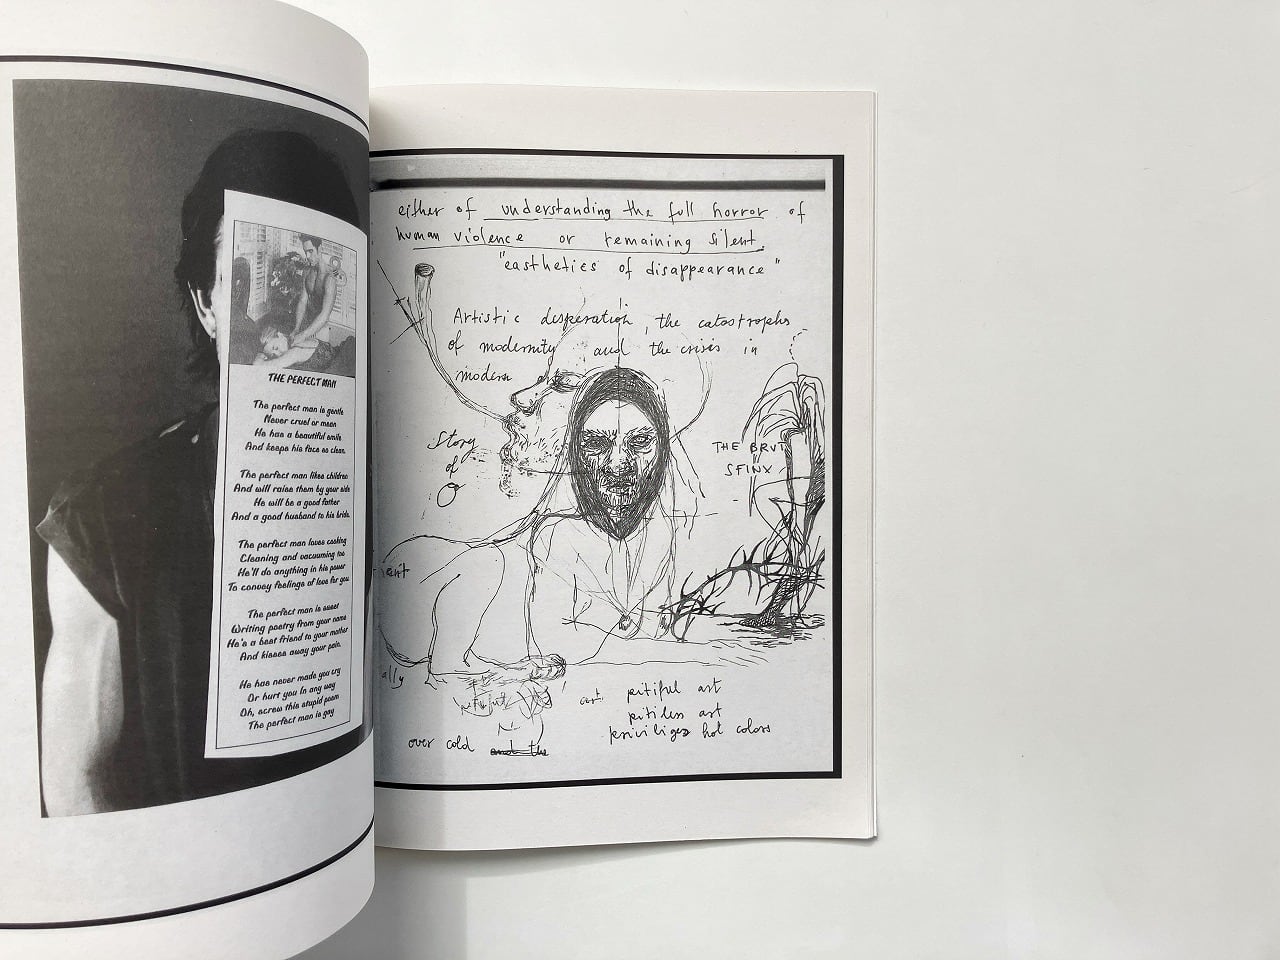 THE PERFECT MAN
The perfect man is gentle
Never cruel or mean
He has a beautiful smile
And keeps his face so clean.
The perfect man likes children
And will raise them by your side
He will be a good father
And a good husband to his bride.
The perfect man loves cooking
Cleaning and vacuuming too
He'll do anything in his power
To convey feelings of love for you.
The perfect man is sweet
Writing poetry from your name
He's a best friend to your mother
And kisses away your pain.
He has never made you cry
Or hurt you in any way
Oh, screw this stupid poem
The perfect man is gay
either of understanding the full horror of
human violence or remaining silent.
"easthetics of disappearance"
Artistic desperation, the catastrophe
of modernity and the crisis in
modern
Story
of
O
THE BRUT
SFINX
ally
pitiful art
pitiless art
priviliges hot colors
over cold and the